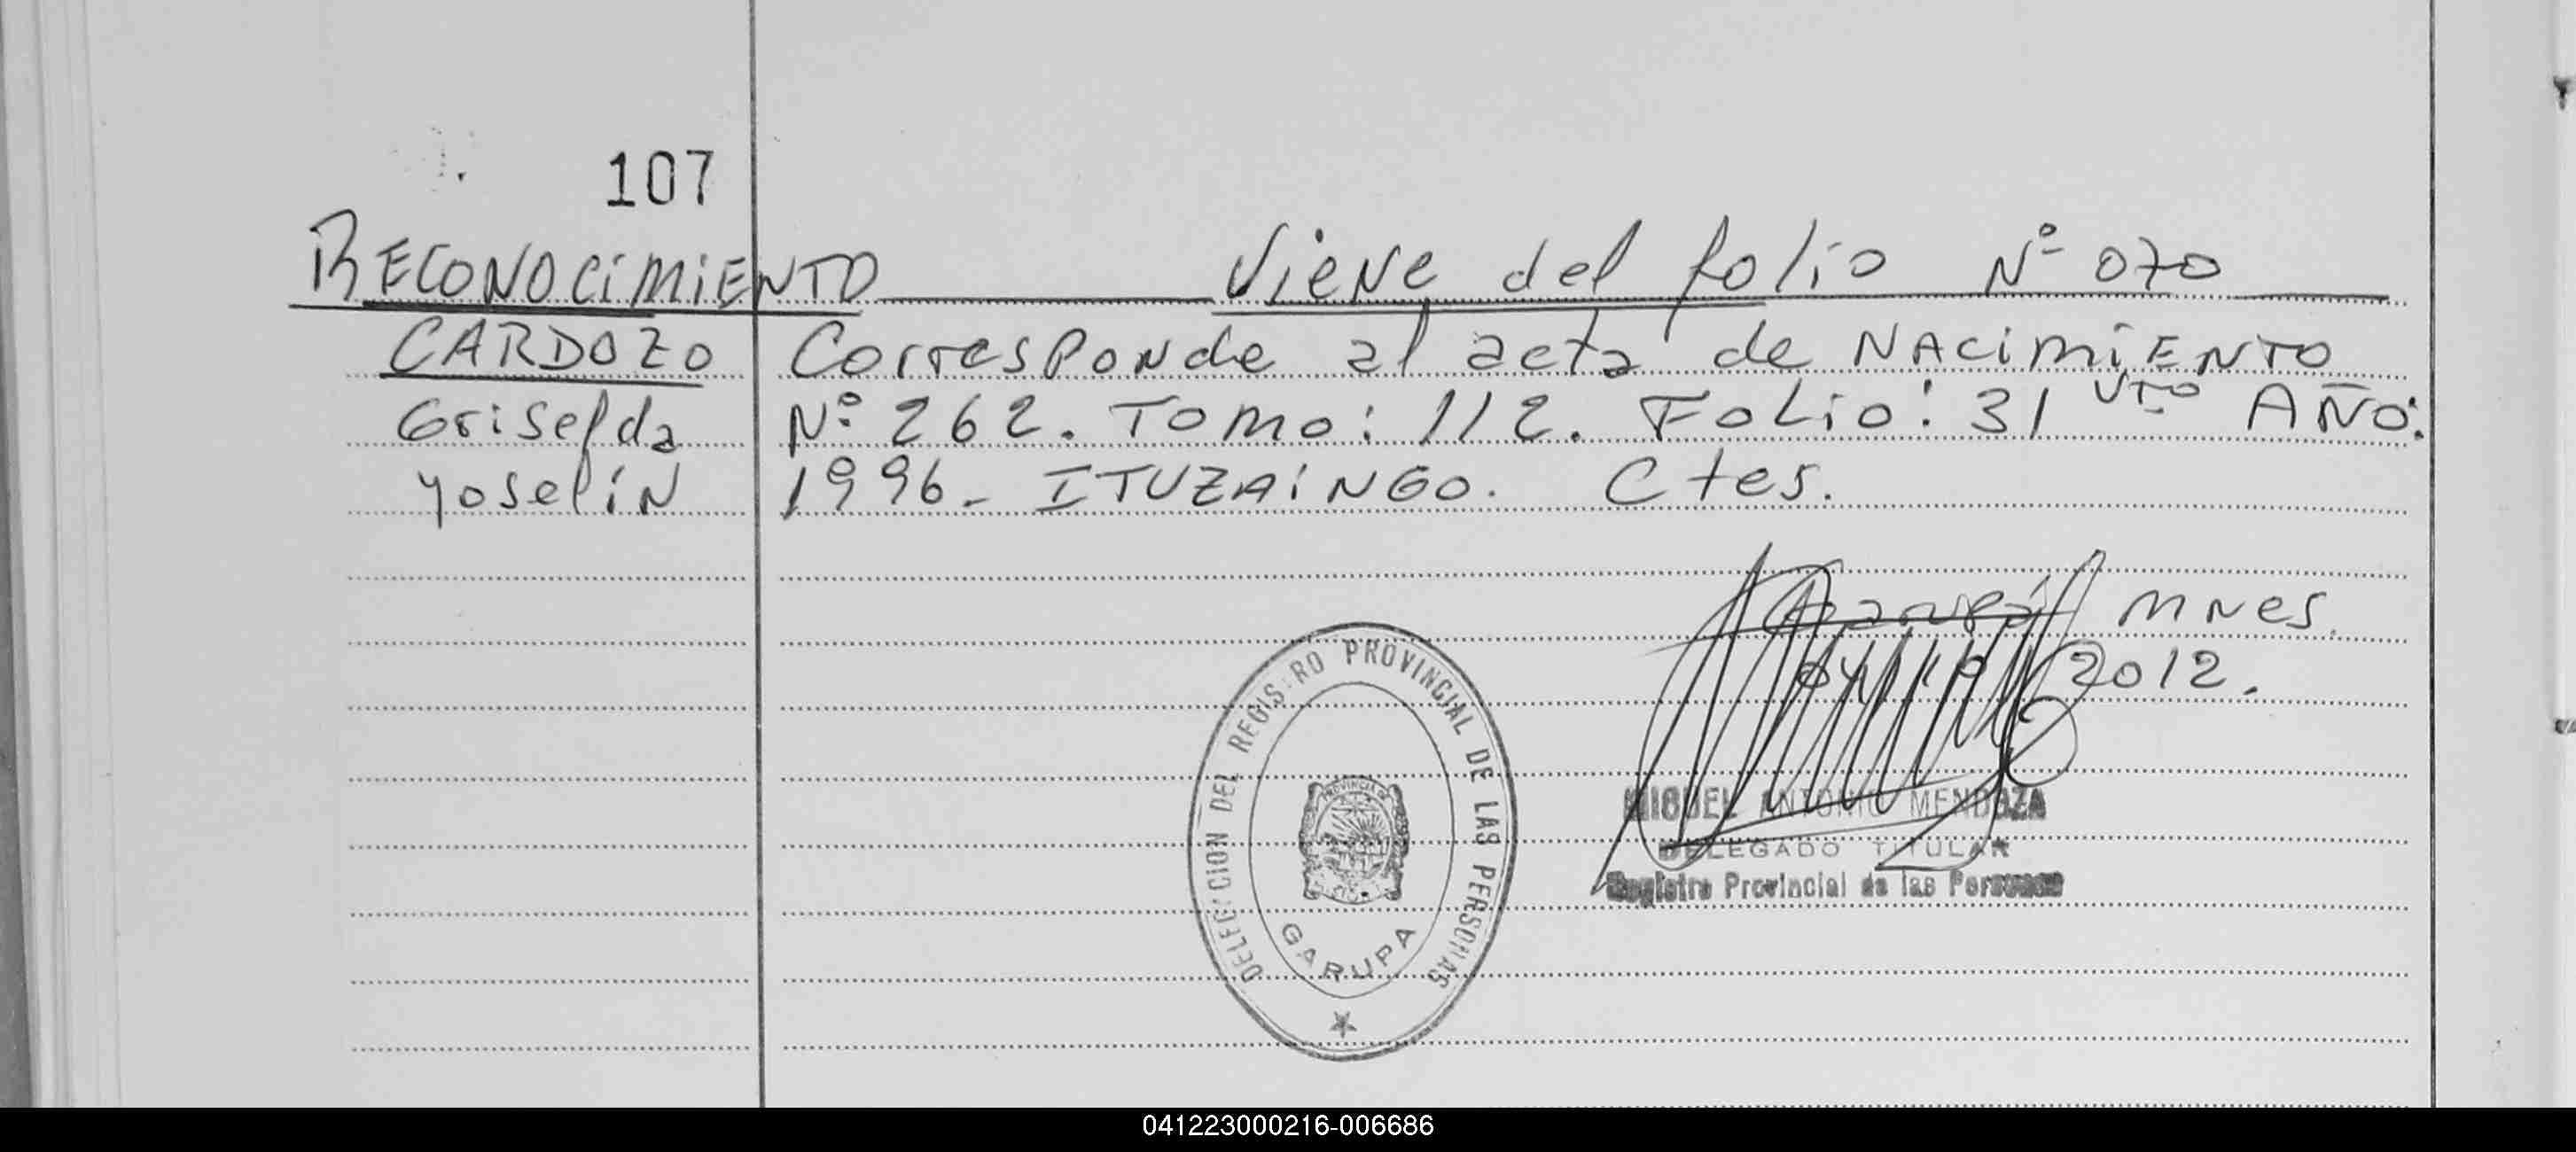 107
RECONOCIMIENTO Viene del folio Nº 070
CARDOZO Corresponde al acta de NACIMIENTO
Griselda Nº 262. TOMO: 112. FOLIO: 31 VTO AÑO:
Yoselin 1996- ITUZAINGO. Ctes.
Garupá Mnes.
2012.
DELEGACION DEL REGISTRO PROVINCIAL DE LAS PERSONAS
GARUPA
MIGUEL ANTONIO MENDOZA
DELEGADO TITULAR
Registro Provincial de las Personas
041223000216-006686